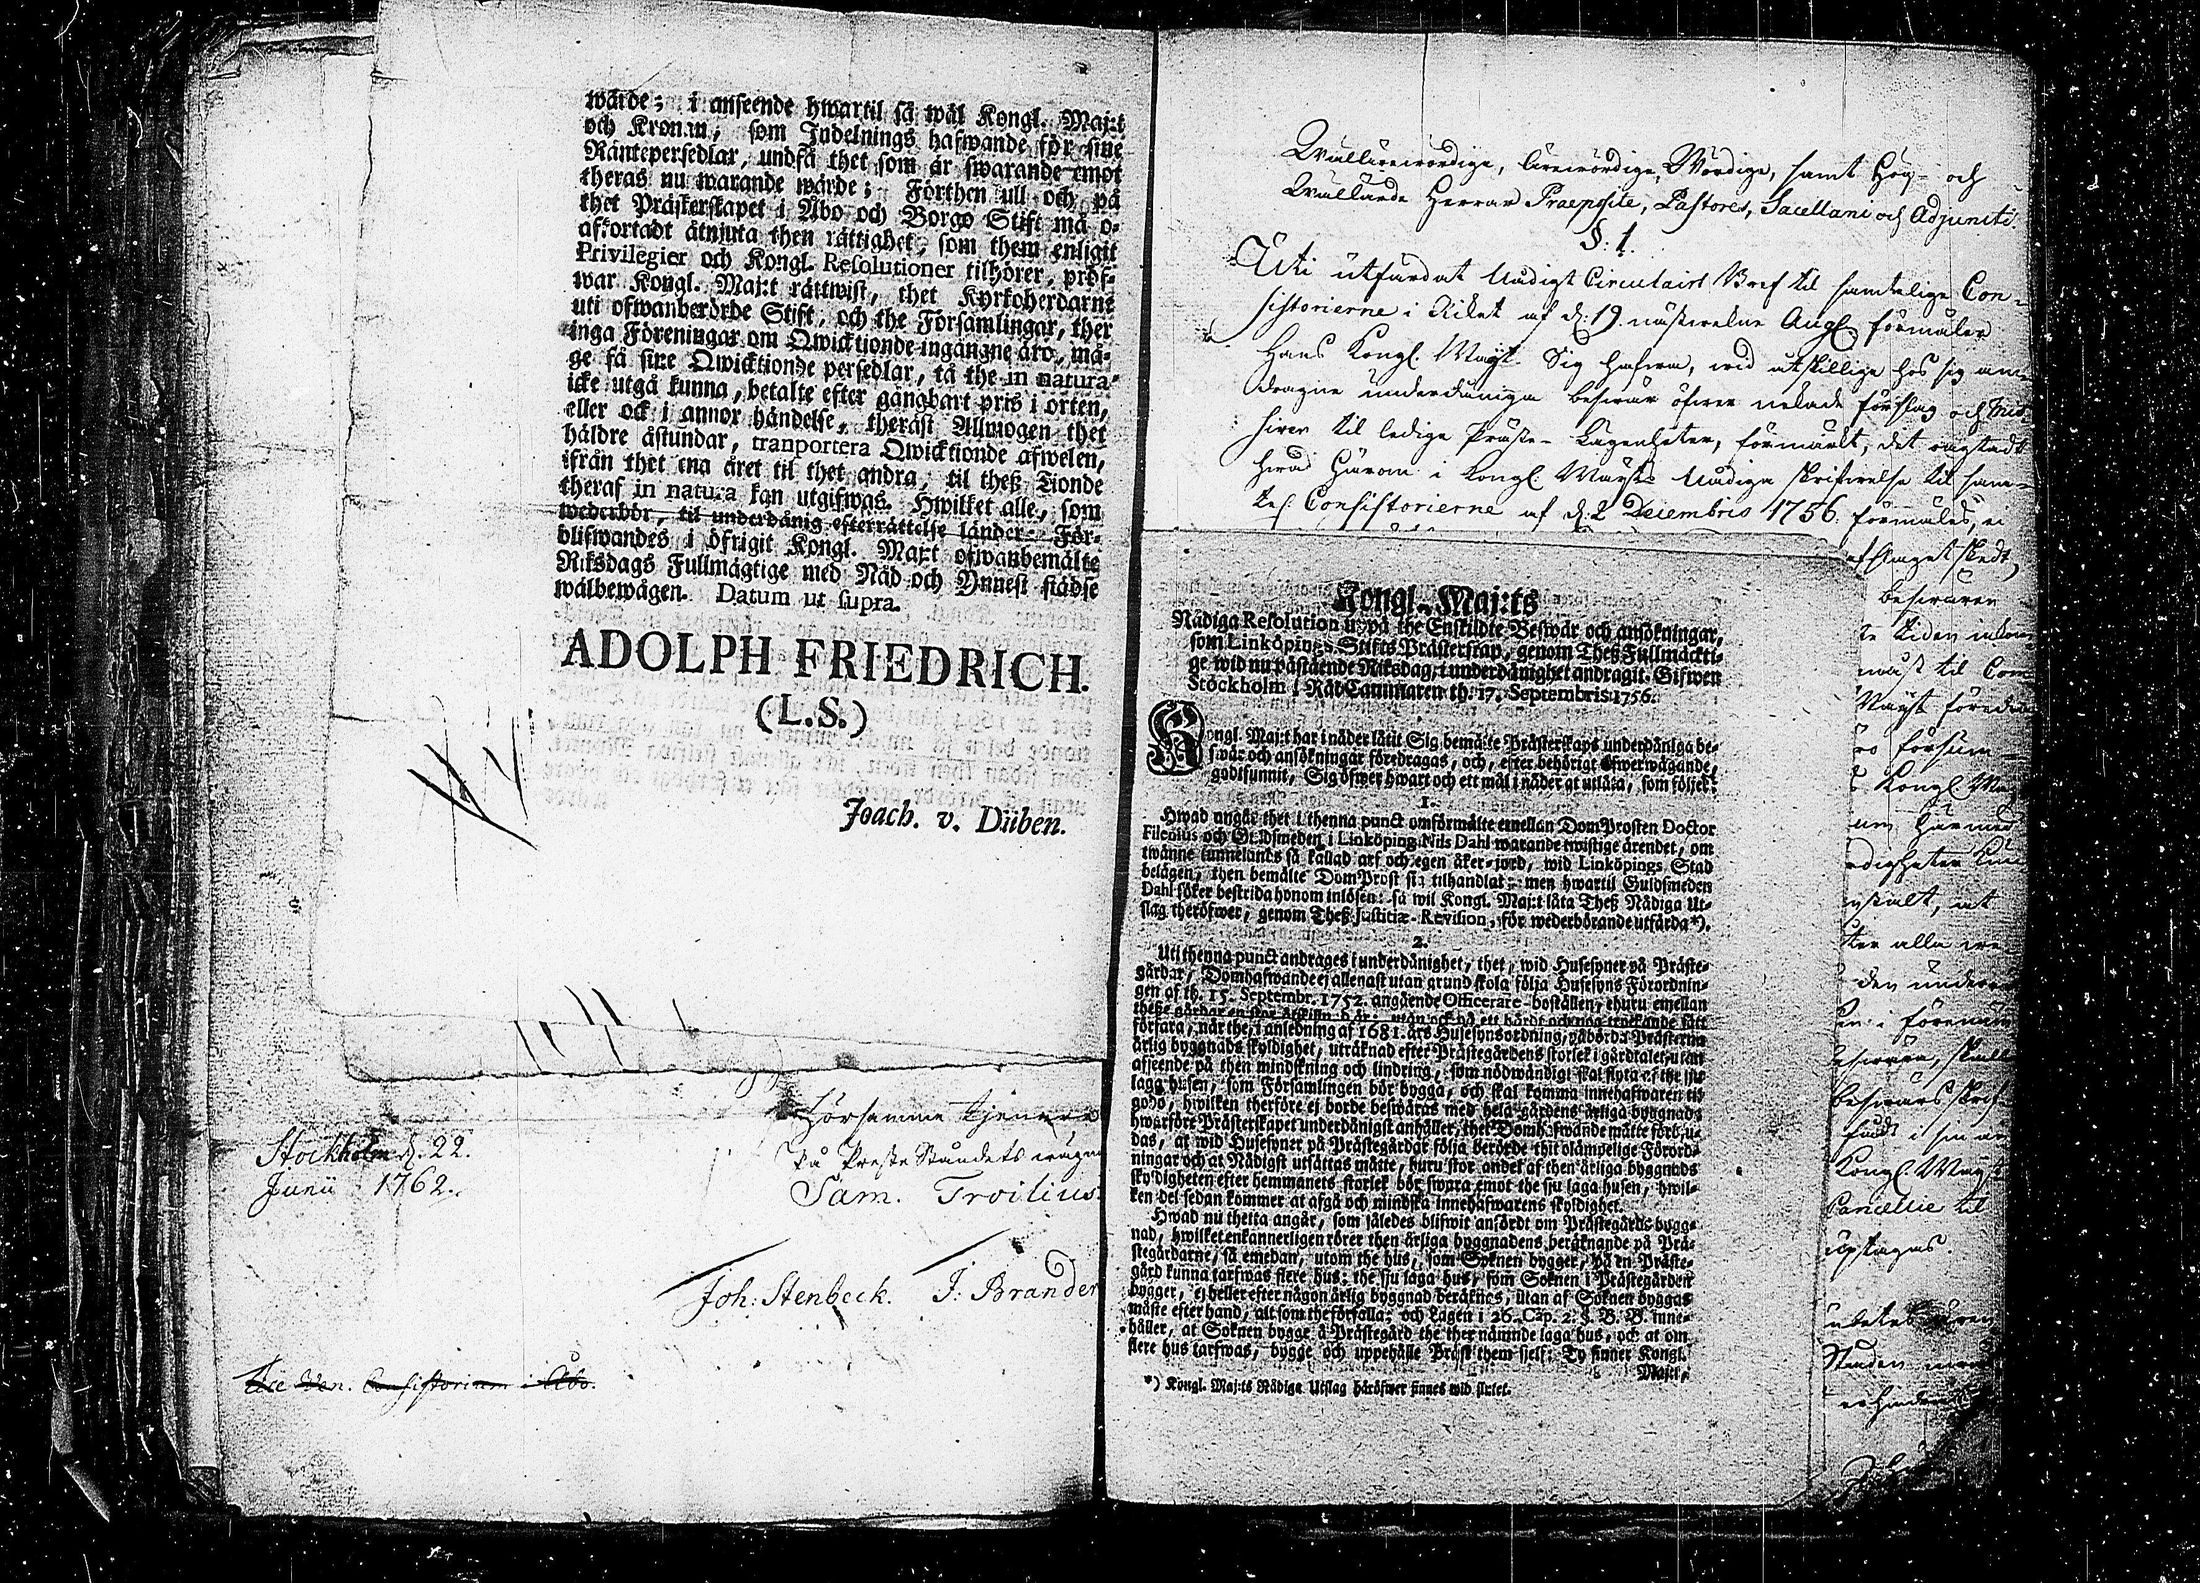 wärde; i anseende hwartil så wäl Kongl. Maj:t
och Kronan, som Indelnings hafwande för sine
Räntepersedlar, undfå thet som är swarande emot
theras nu warande wärde; Förthen skull och på
thet Prästerskapet i Åbo och Borgo Stift må o-
afkortadt åtnjuta then rättighet, som them enligit
Privilegier och Kongl. Resolutioner tilhörer, pröf-
war Kongl. Maj:t rättwist, thet Kyrkoherdarne
uti ofwanberörde Stift, och the Församlingar, ther
inga Föreningar om Qwicktionde ingångne äro, må-
ge få sine Qwicktionde persedlar, tå the in natura
icke utgå kunna, betalte efter gångbart pris i orten,
eller ock i annor händelse, theräst Allmogen thet
häldre åstundar, tranportera Qwicktionde afwelen,
ifrån thet ena året til thet andra, til theß Tionde
theraf in natura kan utgifwas. Hwilket alle, som
wederbör, til underdånig efterrättelse länder. För-
blifwandes i öfrigit Kongl. Maj:t ofwanbemälte
Riksdags Fullmägtige med Nåd och Ynnest städse
wälbewägen. Datum ut supra.
ADOLPH FRIEDRICH.
(L.S.)
Joach. v. Düben.
Hörsamme tjenare
På Preste Ståndets wägnar
Stockholm d. 22.
Junii 1762.
Sam. Troilius.
Joh: Stenbeck. J: Brander
Til Ven. Consistorium i Åbo.
Wällärewördige, Ärewördige, Wördige, samt Hög- och
Wällärde Herrar Praepositi, Pastores, Sacellani och Adjuncti.
§: 1.
Uti utfärdat Nådigt Circulairt Bref til samtelige Con-
sistorierne i Riket af d: 19. nästwekne Aug. förmäler
Hans Kongl. Maj:t Sig hafwa, wid åtskillige hos sig an-
dragne underdåniga beswär öfwer nekade förslag och
til ledige Präste-Lägenheter, förmärkt, det oagtadt
hwad härom i Kongl. Maj:ts Nådiga skrifwelse til sam-
tel. Consistorierne af d: 2 Decembris 1756. förmäles, ei
skedt,
beswären
te tiden inkom
mäst til Con
Maj:t föredra
försum-
Kongl. Maj
härmed
alla
den under
i
beswärs skrif
Kongl. Maj:t
Cancellie til
uptages.
Kongl. Maj:ts
Nådiga Resolution uppå the Enskildte Beswär och ansökningar,
som Linköpings Stifts Prästerskap, genom Theß Fullmäckti-
ge wid nu påstående Riksdag, i underdånighet andragit. Gifwen
Stockholm i RådCammaren th. 17. Septembris 1756.
Kongl. Maj:t har i nåder låtit Sig bemälte Prästerskaps underdåniga be-
swär och ansökningar föredragas, och, efter behörigt öfwerwägande,
godtfunnit, Sig öfwer hwart och ett mål i nåder at utlåta, som följer:
1.
Hwad angår thet i thenna punct omförmälte emellan DomProsten Doctor
Filenius och Guldsmeden i Linköping Nils Dahl warande twistige ärendet, om
twänne tunnelands så kallad arf och egen åker-jord, wid Linköpings Stad
belägen, then bemälte DomProst sig tilhandlat; men hwartil Guldsmeden
Dahl söker bestrida honom inlösen: så wil Kongl. Maj:t låta Theß Nådiga Ut-
slag theröfwer, genom Theß Justitiæ-Revision, för wederbörande utfärda *).
2.
Uti thenna punct andrages i underdånighet, thet, wid Husesyner på Präste-
gårdar, Domhafwande ej allenast utan grund skola följa Husesyns Förordnin-
gen af th. 15. Septembr. 1752. angående Officerare-boställen, ehuru emellan
theße gårdar en stor åtskilnad är; utan ock på ett hårdt och nog tryckande sätt
förfara, när the, i anledning af 1681. års Husesynsordning, påbörda Prästerna
årlig byggnads skyldighet, uträknad efter Prästegårdens storlek i gårdtalet, utan
afseende på then mindskning och lindring, som nödwändigt skal flyta af the sju
laga husen, som Församlingen bör bygga, och skal komma innehafwaren til
godo, hwilken therföre ej borde beswäras med hela gårdens årliga byggnad;
hwarföre Prästerskapet underdånigst anhåller, thet Domhafwande måtte förbju-
das, at wid Husesyner på Prästegårdar följa berörde thit olämpelige Förord-
ningar och at Nådigst utsättas måtte, huru stor andel af then årliga byggnads
skyldigheten efter hemmanets storlek bör swara emot the sju laga husen, hwil-
ken del sedan kommer at afgå och mindska innehafwarens skyldighet.
Hwad nu thetta angår, som således blifwit anfördt om Prästegårds bygg-
nad, hwilket enkannerligen rörer then årliga byggnadens beräknande på Prä-
stegårdarne, så emedan, utom the hus, som Soknen bygger, på en Präste-
gård kunna tarfwas flere hus: the sju laga hus, som Soknen i Prästegården
bygger, ej heller efter någon årlig byggnad beräknes, utan af Soknen byggas
måste efter hand, alt som the förfalla: och Lagen i 26. Cap. 2. §. B. B. inne-
håller, at Soknen bygge å Prästegård the ther nämnde laga hus, och at om
flere hus tarfwas, bygge och uppehålle Präst them sjelf: Ty finner Kongl.
Maj:t,
*) Kongl. Maj:ts Nådiga Utslag häröfwer finnes wid slutet.